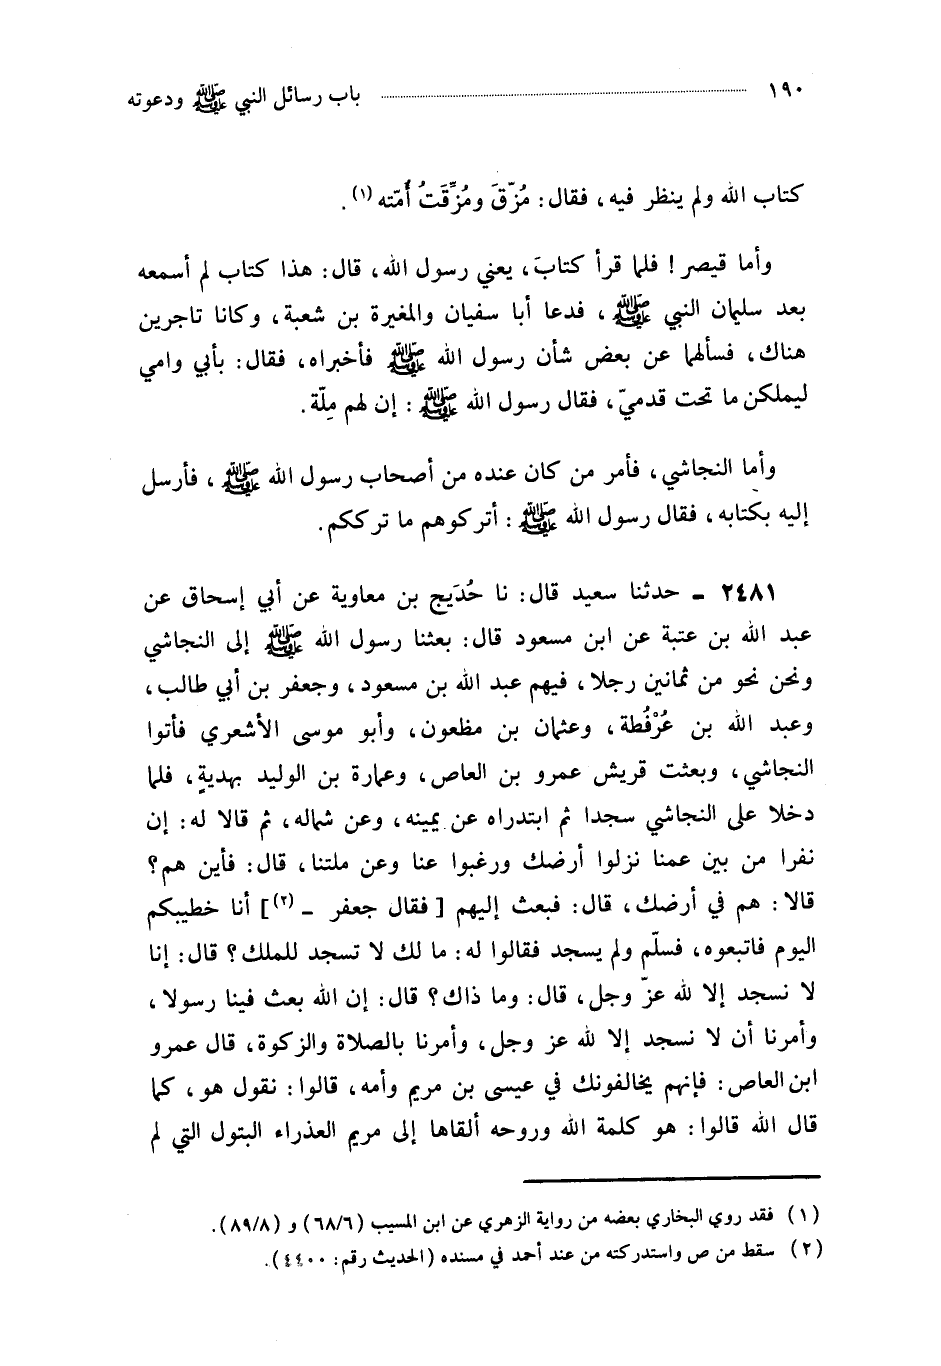 ١٩٠ باب رسائل النبي ﷺ ودعوته
كتاب الله ولم ينظر فيه، فقال: مُزّقَ ومُزِّقَتُ أُمّته (١).
وأما قيصر! فلما قرأ كتابَ، يعني رسول الله، قال: هذا كتاب لم أسمعه
بعد سليمان النبي ﷺ، فدعا أبا سفيان والمغيرة بن شعبة، وكانا تاجرين
هناك، فسألهما عن بعض شأن رسول الله ﷺ فأخبراه، فقال: بأبي وامي
ليملكن ما تحت قدميّ، فقال رسول الله ﷺ: إن لهم مِلّة.
وأما النجاشي، فأمر من كان عنده من أصحاب رسول الله ﷺ، فأرسل
إليه بكتابه، فقال رسول الله ﷺ: أتركوهم ما ترككم.
٢٤٨١ ـ حدثنا سعيد قال: نا حُدَيج بن معاوية عن أبي إسحاق عن
عبد الله بن عتبة عن ابن مسعود قال: بعثنا رسول الله ﷺ إلى النجاشي
ونحن نحو من ثمانين رجلا، فيهم عبد الله بن مسعود، وجعفر بن أبي طالب،
وعبد الله بن عُرْفُطة، وعثمان بن مظعون، وأبو موسى الأشعري فأتوا
النجاشي، وبعثت قريش عمرو بن العاص، وعمارة بن الوليد بهديةٍ، فلما
دخلا على النجاشي سجدا ثم ابتدراه عن يمينه، وعن شماله، ثم قالا له: إن
نفرا من بين عمنا نزلوا أرضك ورغبوا عنا وعن ملتنا، قال: فأين هم؟
قالا: هم في أرضك، قال: فبعث إليهم [فقال جعفر ـ (٢)] أنا خطيبكم
اليوم فاتبعوه، فسلّم ولم يسجد فقالوا له: ما لك لا تسجد للملك؟ قال: إنا
لا نسجد إلا لله عزّ وجل، قال: وما ذاك؟ قال: إن الله بعث فينا رسولا،
وأمرنا أن لا نسجد إلا لله عز وجل، وأمرنا بالصلاة والزكوة، قال عمرو
ابن العاص: فإنهم يخالفونك في عيسى بن مريم وأمه، قالوا: نقول هو، كما
قال الله قالوا: هو كلمة الله وروحه ألقاها إلى مريم العذراء البتول التي لم
(١) فقد روي البخاري بعضه من رواية الزهري عن ابن المسيب (٦٨/٦) و (٨٩/٨).
(٢) سقط من ص واستدركته من عند أحمد في مسنده (الحديث رقم: ٤٤٠٠).